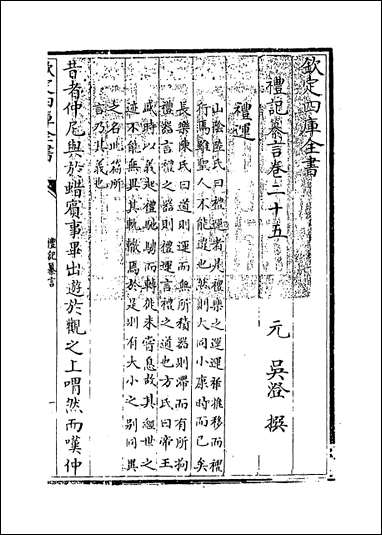 欽定四庫全書
禮記纂言卷二十五
元 吳澄 撰
禮運
山陰陸氏曰禮運者是禮樂之運運雖推移而禮
行焉雖聖人不能違也然則大同小康時而已矣
長樂陳氏曰道則運而無所積器則滯而有所拘
禮器言禮之器則禮運言禮之道也方氏曰帝王
盛時以義起禮馳而轉徙未嘗息故其經世之
迹不能無異其軌轍焉於是則有大小之别同異
之名此篇所
言乃其義也
昔者仲尼與於蜡賓事畢出遊於觀之上喟然而嘆仲
欽定四庫全書
禮記纂言
一